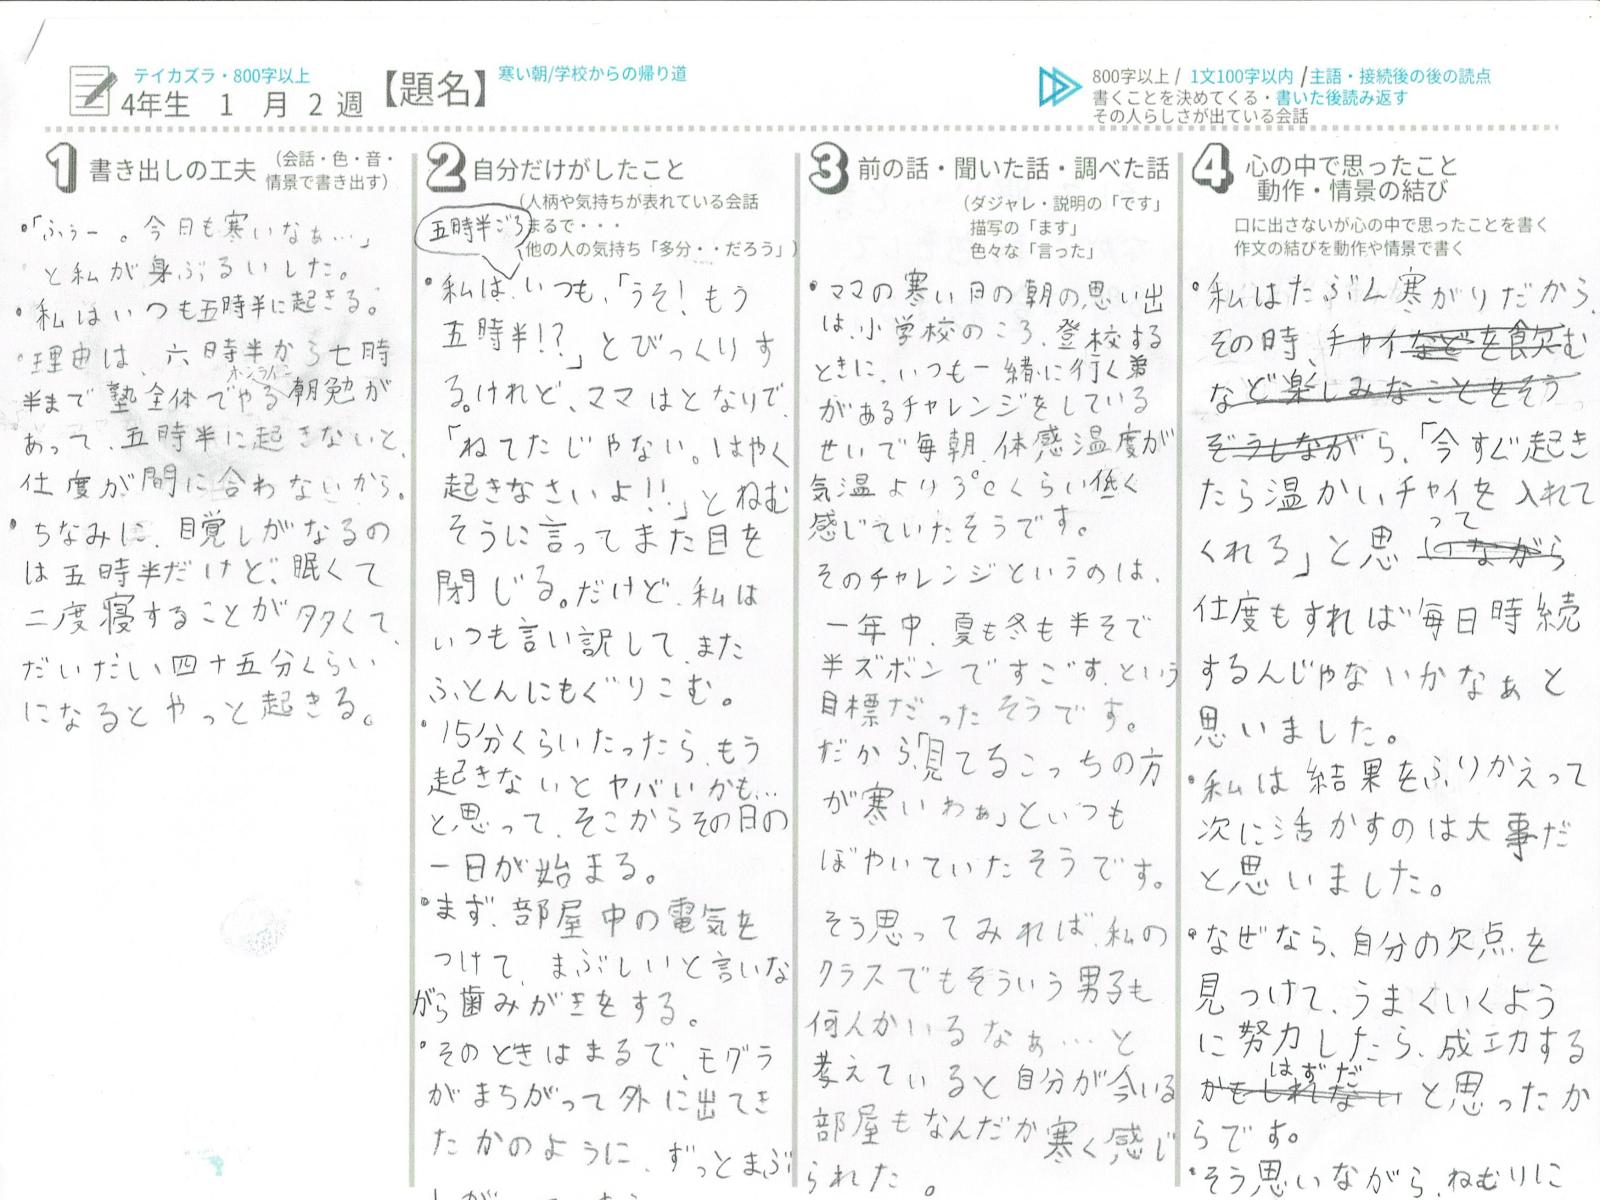 テイカズラ・800字以上
4年生 1 月 2 週
【題名】
寒い朝/学校からの帰り道
800字以上 / 1文100字以内 / 主語・接続後の後の読点
書くことを決めてくる・書いた後読み返す
その人らしさが出ている会話
1 書き出しの工夫
(会話・色・音・
情景で書き出す)
・「ふぅー。今日も寒いなぁ…」
と私が身ぶるいした。
・私はいつも五時半に起きる。
・理由は、六時半から七時
オンライン
半まで塾全体でやる朝勉が
あって、五時半に起きないと、
仕度が間に合わないから。
・ちなみに、目覚しがなるの
は五時半だけど、眠くて
二度寝することが多くて、
だいだい四十五分くらい
になるとやっと起きる。
2 自分だけがしたこと
(人柄や気持ちが表れている会話
まるで・・・
他の人の気持ち「多分・・だろう」)
五時半ごろ
・私は、いつも、「うそ!もう
五時半!?」とびっくりす
る。けれど、ママはとなりで、
「ねてたじゃない。はやく
起きなさいよ!!」とねむ
そうに言ってまた目を
閉じる。だけど、私は
いつも言い訳して、また
ふとんにもぐりこむ。
・15分くらいたったら、もう
起きないとヤバいかも…
と思って、そこからその日の
一日が始まる。
・まず、部屋中の電気を
つけて、まぶしいと言いな
がら歯みがきをする。
・そのときはまるで、モグラ
がまちがって外に出てき
たかのように、ずっとまぶ
しが
3 前の話・聞いた話・調べた話
(ダジャレ・説明の「です」
描写の「ます」
色々な「言った」)
・ママの寒い日の朝の思い出
は、小学校のころ、登校する
ときに、いつも一緒に行く弟
があるチャレンジをしている
せいで毎朝、体感温度が
気温より3℃くらい低く
感じていたそうです。
そのチャレンジというのは、
一年中、夏も冬も半そで
半ズボンですごす、という
目標だったそうです。
だから、「見てるこっちの方
が寒いわぁ」といつも
ぼやいていたそうです。
そう思ってみれば、私の
クラスでもそういう男子も
何人かいるなぁ…と
考えていると自分が今いる
部屋もなんだか寒く感じ
られた。
4 心の中で思ったこと
動作・情景の結び
口に出さないが心の中で思ったことを書く
作文の結びを動作や情景で書く
・私はたぶん寒がりだから、
その時、チャイなどを飲む
など楽しみなことをそう
ぞうしながら、「今すぐ起き
たら温かいチャイを入れて
って
くれる」と思いながら
仕度もすれば毎日時続
するんじゃないかなぁと
思いました。
・私は結果をふりかえって
次に活かすのは大事だ
と思いました。
・なぜなら、自分の欠点を
見つけて、うまくいくよう
に努力したら、成功する
はずだ
かもしれないと思ったか
らです。
・そう思いながら、ねむりに